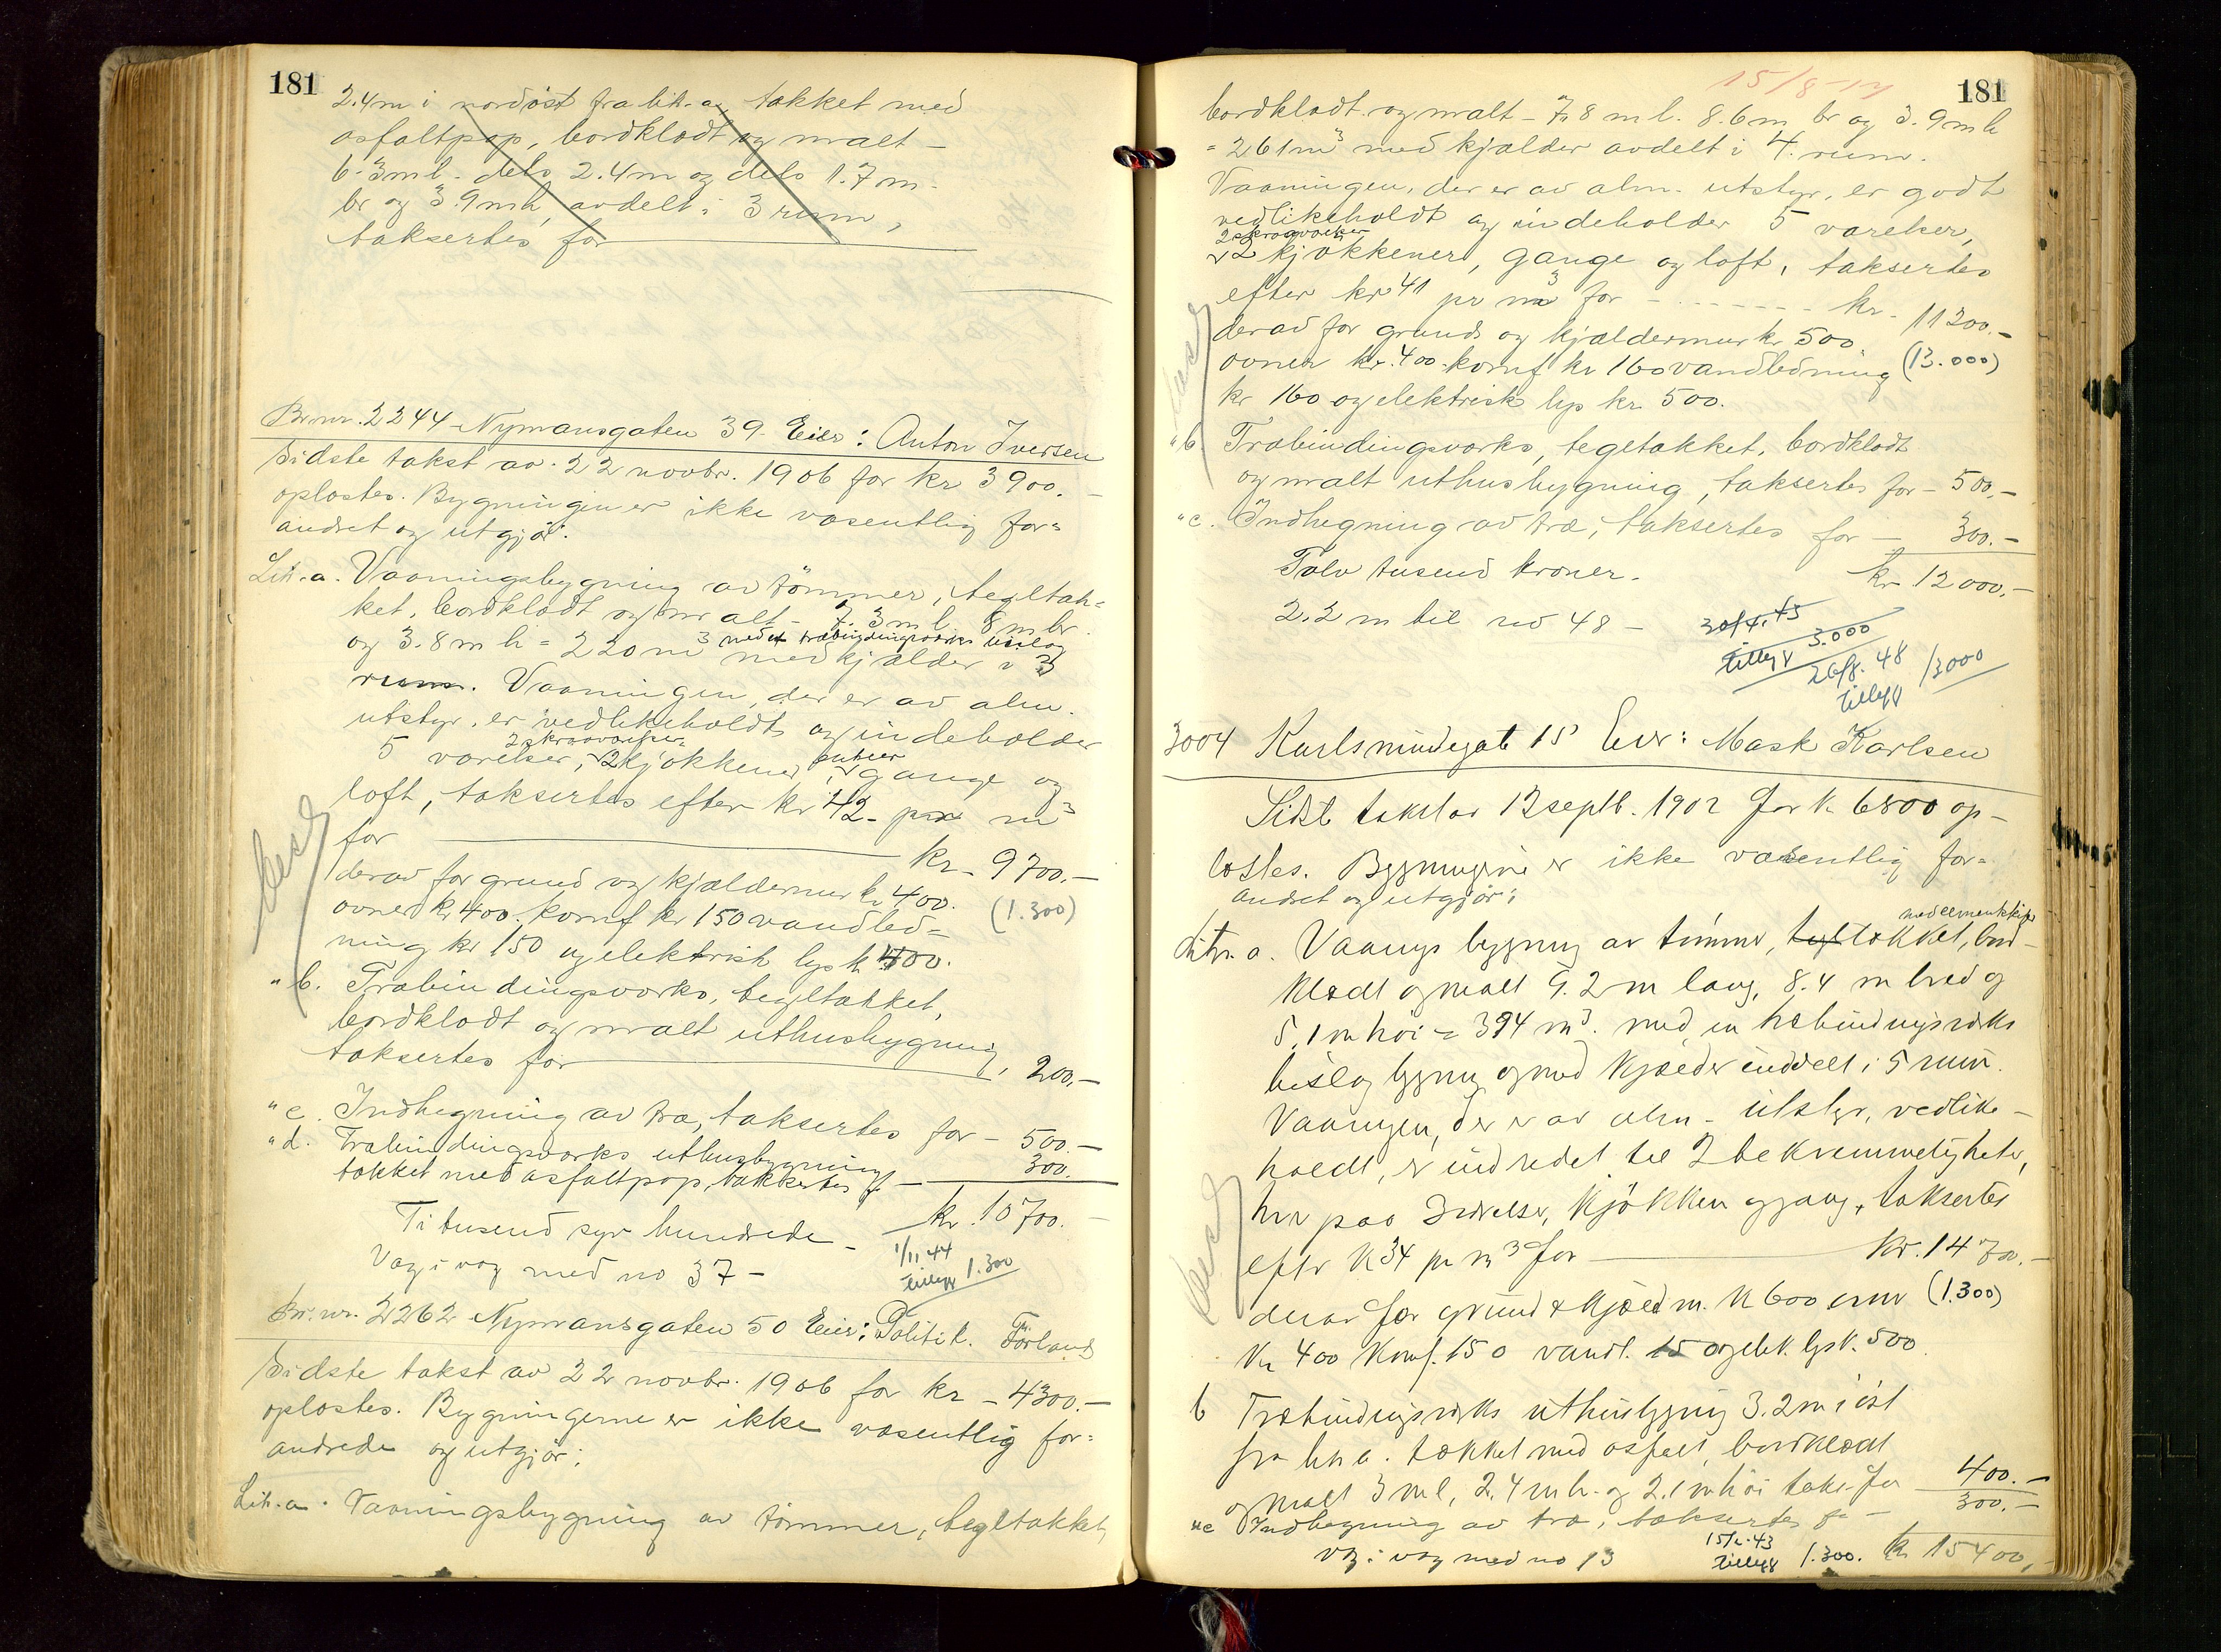 181
2.4 m i nordöst fra lit. a, tækket med
asfaltpap, bordklædt og malt –
6.3 m l. dels 2.4 m og dels 1.7 m.
br og 3.9 m h, avdelt i 3 rum,
taksertes for
Br.nr. 2244 – Nymansgaten 39. Eier: Anton Iversen
Sidste takst av 22 novbr. 1906 for kr 3900.–
oplæstes. Bygningen er ikke væsentlig for=
andret og utgjör:
Lit. a. Vaaningsbygning av tömmer, tegltæk=
ket, bordklædt og malt – 7.3 m l. 8 m br.
og 3.8 m h = 220 m³ med kjælder i 3
med et træbindingsværks bislag
rum. Vaaningen, der er av alm.
utstyr, er vedlikeholdt og indeholder
2 skraaværelser
5 værelser, 2 kjökkener, gange og
loft, taksertes efter kr 42 – pr m³
for kr – 9700.–
derav for grund og kjældermur kr 400. (1.300)
ovner kr 400. komf kr 150 vandled=
ning kr 150 og elektrisk lys kr 400.
" b. Træbindingsværks, tegltækket,
bordklædt og malt uthusbygning,
taksertes for 200.–
" c. Indhegning av træ, taksertes for – 500.–
" d. Træbindingsværks uthusbygning
tækket med asfaltpap, taksertes f – 300.
Ti tusend syv hundrede – kr. 10700.–
Væg i væg med no 37 – 1/11 44
tillegg 1.300
Br.nr. 2262 Nymansgaten 50 Eier: Politik. Förland
Sidste takst av 22 novbr. 1906 for kr – 4300.–
oplæstes. Bygningerne er ikke væsentlig for=
andrede og utgjör:
Lit. a. Vaaningsbygning av tömmer, tegltækket,
15/8-17
181
bordklædt og malt – 7.8 m l. 8.6 m br og 3.9 m h
= 261 m³ med kjælder avdelt i 4 rum.
Vaaningen, der er av alm. utstyr, er godt
vedlikeholdt og indeholder 5 værelser,
2 skraaværelser
2 kjökkener, gange og loft, taksertes
efter kr 41 pr m³ for – kr – 11200.–
derav for grund og kjældermur kr 500. (13.000)
ovner kr. 400. komf kr 160 vandledning
kr 160 og elektrisk lys kr 500.
" b. Træbindingsværks, tegltækket, bordklædt
og malt uthusbygning, taksertes for – 500.–
" c. Indhegning av træ, taksertes for – 300.–
Tolv tusend kroner. kr 12000.–
2.2 m til no 48 – 30/4. 45
tillegg 3.000
26/8. 48
tillegg 13000
3004 Karlsmindegate 15 Eier: Mask Karlsen
Sidste takst av 12 septb. 1902 for kr 6800 op–
læstes. Bygningerne er ikke væsentlig for=
andret og utgjör:
med cementskifer
Litr. a. Vaanings bygning av tömmer, tegltækket, bord–
klædt og malt 9.2 m lang, 8.4 m bred og
5.1 m höi = 394 m³. med en træbindingsværks
bislag bygning og med kjælder inddelt i 5 rum.
Vaaningen, der er av alm. utstyr, vedlike–
holdt, er indredet til 2 bekvemmeligheter,
hver paa 3 værelser, kjökken og gang, taksertes
efter kr 34 pr m³ for kr. 14700.–
derav for grund & kjæld m. kr 600 ovner (1.300)
kr 400 komf. 150 vandl. 15 og elek. lys k. 500.
b Træbindingsværks uthusbygning 3.2 m i öst
fra litr a. tækket med asfalt, bordklædt
og malt 3 m l, 2.4 m br. og 2.1 m höi taks. for 400.–
" c Indhegning av træ, taksertes for – 300.–
væg i væg med no 13 15/2-43
tillegg 1.300. kr 15400,–